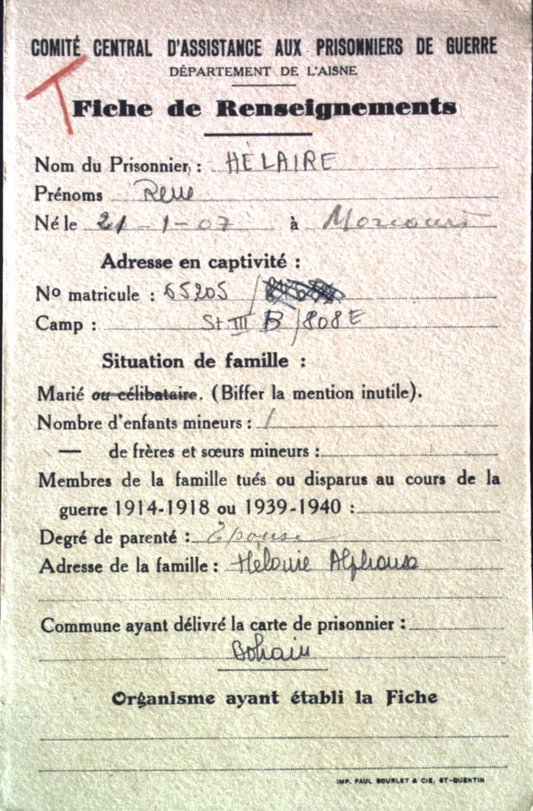 COMITÉ CENTRAL D'ASSISTANCE AUX PRISONNIERS DE GUERRE
DÉPARTEMENT DE L'AISNE
T
Fiche de Renseignements
Nom du Prisonnier : HÉLAIRE
Prénoms René
Né le 21-1-07 à Morcourt
Adresse en captivité :
No matricule : 65205 /
Camp : St III B /808E
Situation de famille :
Marié ou célibataire. (Biffer la mention inutile).
Nombre d'enfants mineurs : /
— de frères et sœurs mineurs :
Membres de la famille tués ou disparus au cours de la
guerre 1914-1918 ou 1939-1940 :
Degré de parenté : Épouse
Adresse de la famille : Alphonse
Commune ayant délivré la carte de prisonnier :
Bohain
Organisme ayant établi la Fiche
IMP. PAUL BOURLET & CIE, ST-QUENTIN